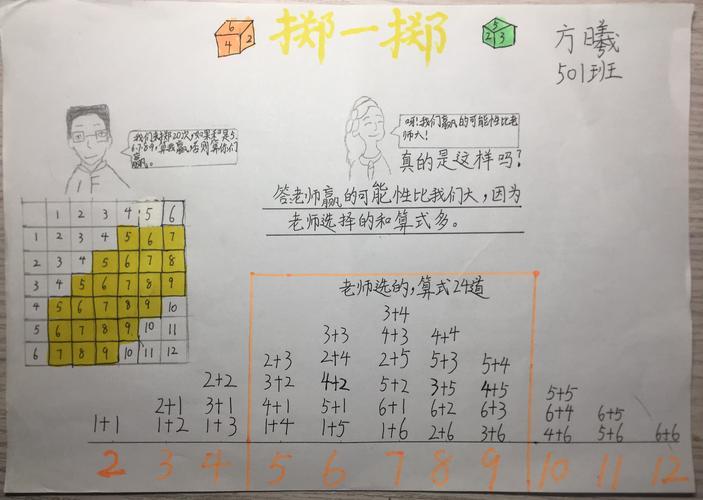 6 4 2
掷一掷
5 2 3
方曦
501班
我们来掷20次,如果和是5、
6、7、8、9,算我赢,否则算你们
赢。
呀!我们赢的可能性比老
师大!
真的是这样吗?
答:老师赢的可能性比我们大,因为
老师选择的和算式多。
1 2 3 4 5 6
1 2 3 4 5 6 7
2 3 4 5 6 7 8
3 4 5 6 7 8 9
4 5 6 7 8 9 10
5 6 7 8 9 10 11
6 7 8 9 10 11 12
老师选的,算式24道
3+4
3+3 4+3 4+4
2+3 2+4 2+5 5+3 5+4
2+2 3+2 4+2 5+2 3+5 4+5 5+5
2+1 3+1 4+1 5+1 6+1 6+2 6+3 6+4 6+5
1+1 1+2 1+3 1+4 1+5 1+6 2+6 3+6 4+6 5+6 6+6
2 3 4 5 6 7 8 9 10 11 12